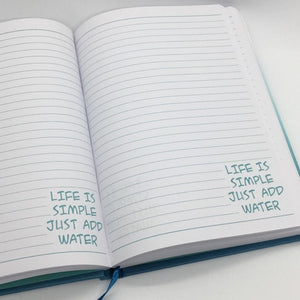 LIFE IS
SIMPLE
JUST ADD
WATER
LIFE IS
SIMPLE
JUST ADD
WATER